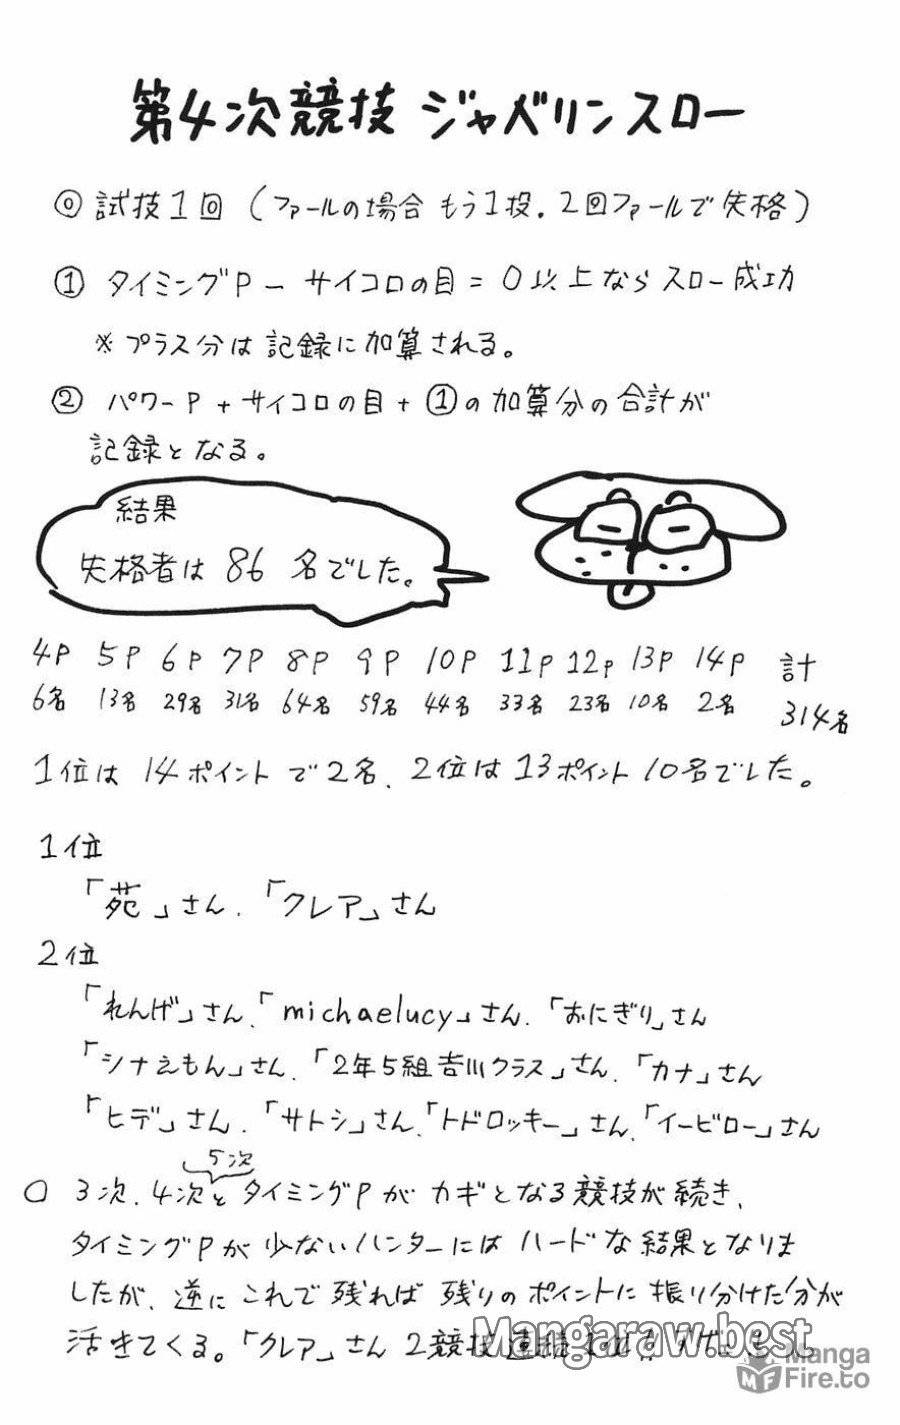 第4次競技 ジャベリンスロー
⓪ 試技1回 (ファールの場合 もう1投. 2回ファールで失格)
① タイミングP − サイコロの目 = 0以上なら スロー成功
※ プラス分は記録に加算される。
② パワーP + サイコロの目 + ①の加算分の合計が
記録となる。
結果
失格者は 86 名でした。
4P 5P 6P 7P 8P 9P 10P 11P 12P 13P 14P 計
6名 13名 29名 31名 64名 59名 44名 33名 23名 10名 2名 314名
1位は 14ポイントで2名、2位は13ポイント10名でした。
1位
「苑」さん、「クレア」さん
2位
「れんげ」さん、「michaelucy」さん、「おにぎり」さん
「シナえもん」さん、「2年5組吉川クラス」さん、「カナ」さん
「ヒデ」さん、「サトシ」さん、「トドロッキー」さん、「イービロー」さん
5次
○ 3次、4次とタイミングPがカギとなる競技が続き、
タイミングPが少ないハンターにはハードな結果となりま
したが、逆にこれで残れば残りのポイントに振り分けた分が
活きてくる。「クレア」さん2競技連続
Mangaraw.best
Manga
Fire.to
MF